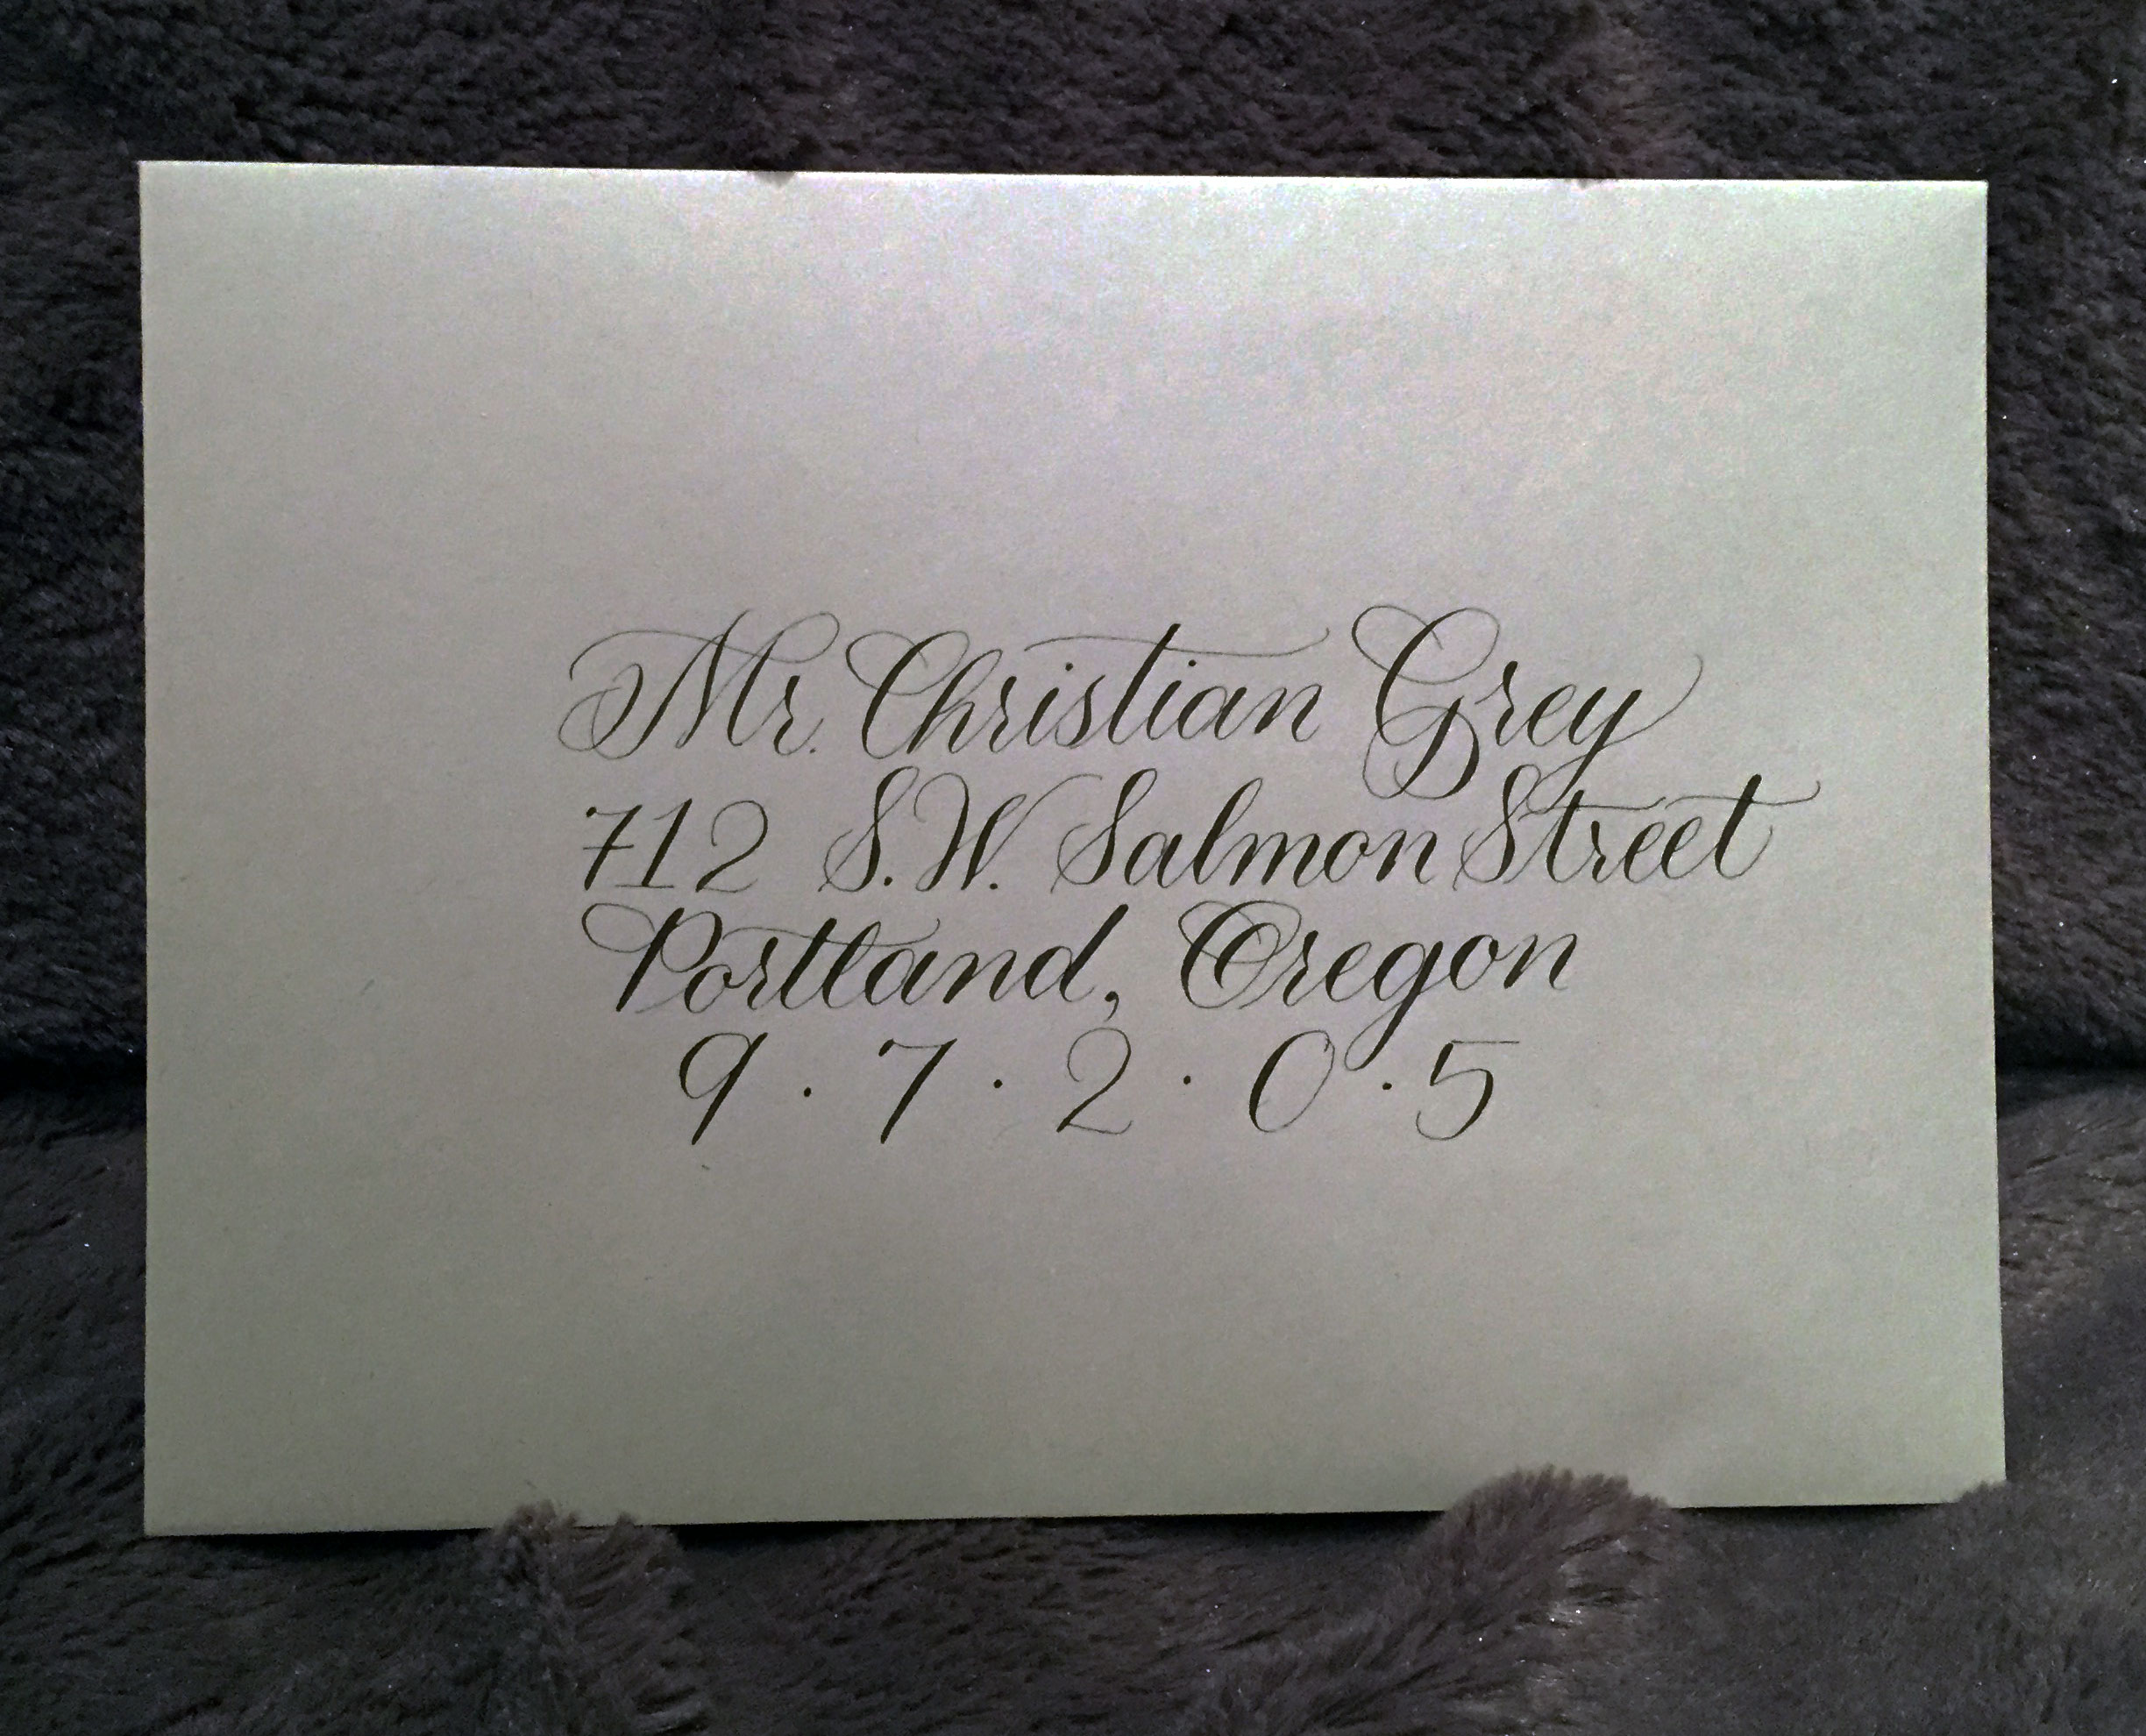 Mr. Christian Grey
712 S.W. Salmon Street
Portland, Oregon
9 · 7 · 2 · 0 · 5